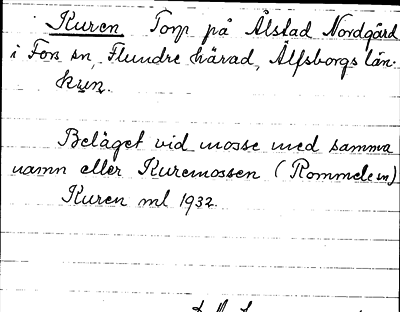 Kuren Torp på Ålstad Nordgård
i Fors sn, Flundre härad, Älfsborgs län.
kun.
Beläget vid mosse med samma
namn eller Kuremossen (Rommele sn)
Kuren ml 1932.